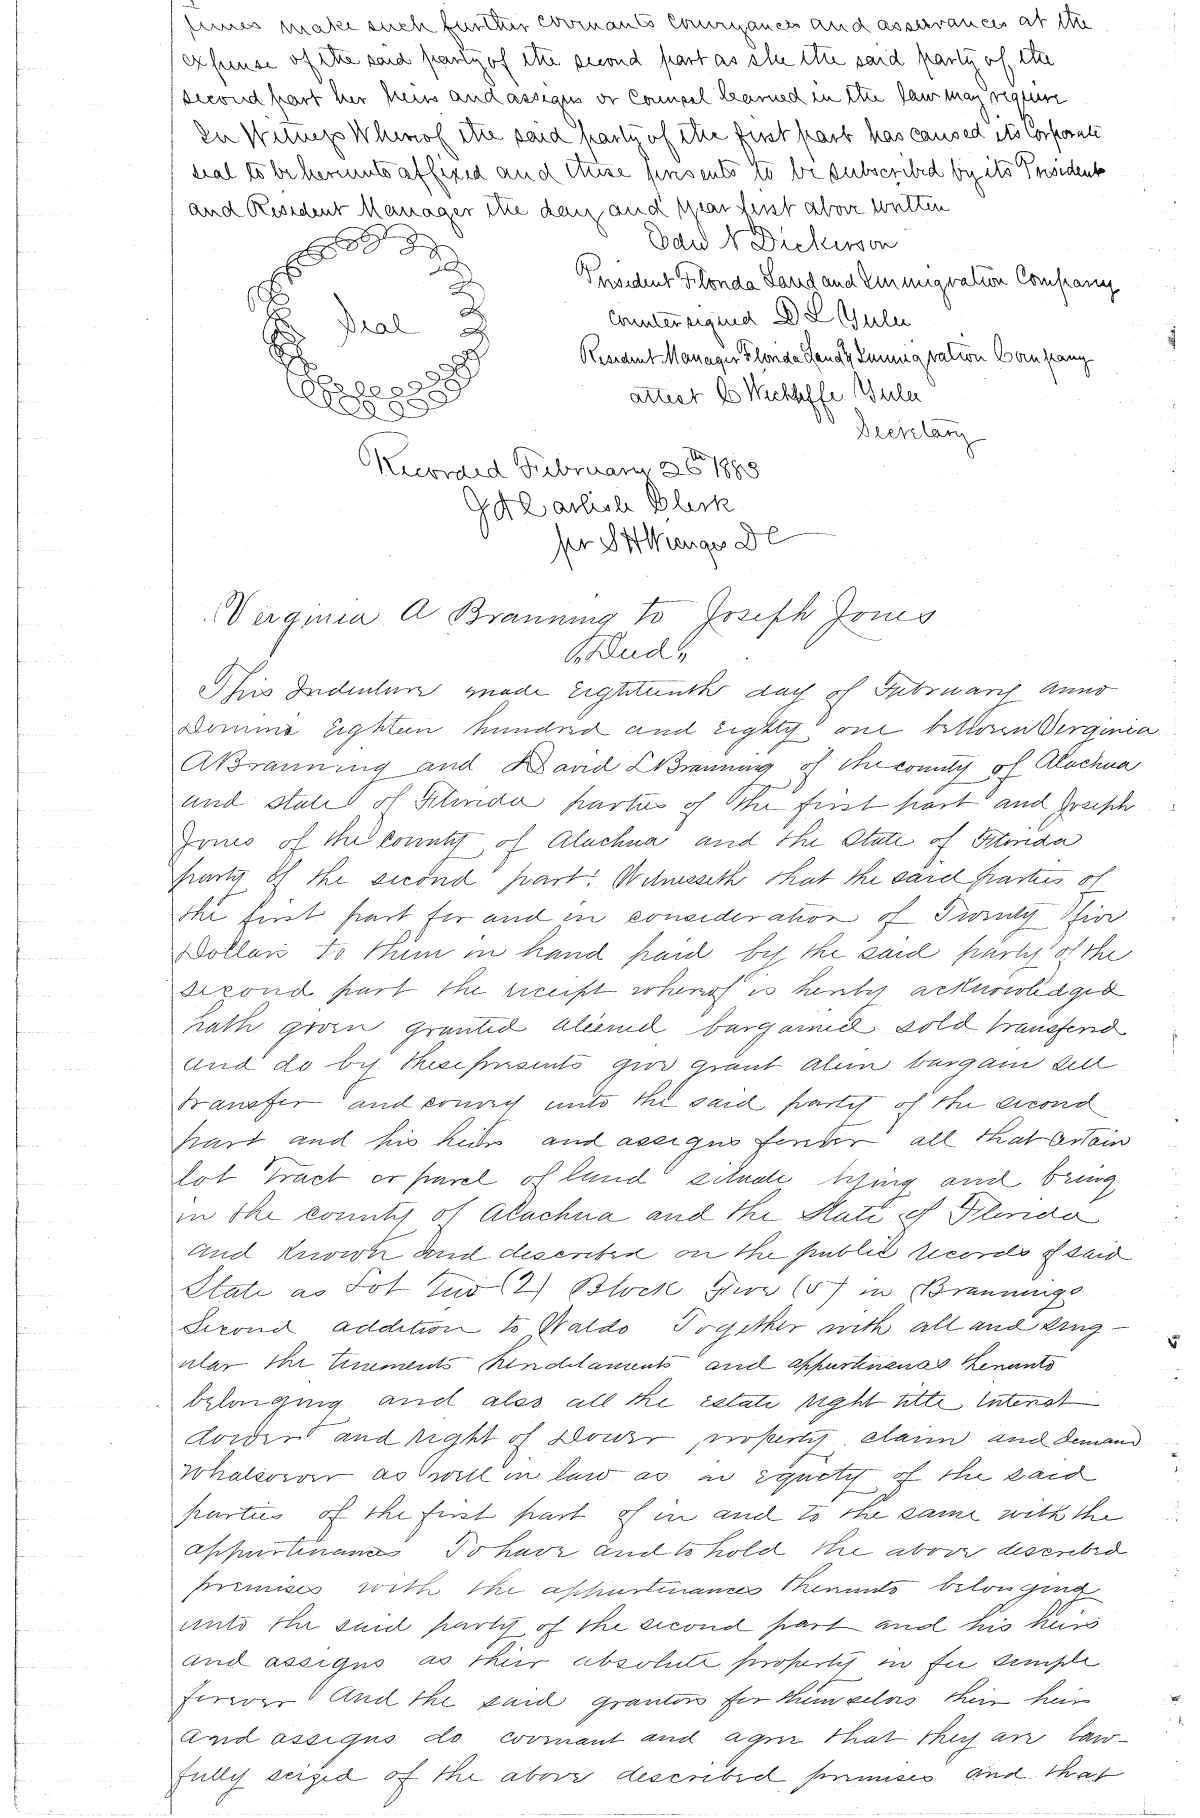 times make such further covenants conveyances and assurances at the
expense of the said party of the second part as she the said party of the
second part her heirs and assigns or counsel learned in the law may require
In Witness Whereof the said party of the first part has caused its Corporate
seal to be hereunto affixed and these presents to be subscribed by its President
and Resident Manager the day and year first above written
Edw N Dickerson
President Florida Land and Immigration Company
Countersigned D L Yulee
Resident Manager Florida Land & Immigration Company
Seal
attest C Wickliffe Yulee
Secretary
Recorded February 26th 1883
Clerk
per S H Wienges DC
Virginia A Branning to Joseph Jones
"Deed"
This Indenture made Eighteenth day of February anno
Domini Eighteen hundred and Eighty one between Verginia
A Branning and David L Branning of the county of Alachua
and state of Florida parties of the first part and Joseph
Jones of the county of Alachua and the State of Florida
party of the second part. Witnesseth that the said parties of
the first part for and in consideration of Twenty five
Dollars to them in hand paid by the said party of the
second part the receipt whereof is hereby acknowledged
hath given granted aliened bargained sold transferd
and do by these presents give grant alien bargain sell
transfer and convey unto the said party of the second
part and his heirs and assigns forever all that certain
lot tract or parcel of land situate lying and being
in the county of Alachua and the State of Florida
and known and described on the public records of said
State as Lot Two (2) Block Five (5) in Brannings
Second addition to Waldo Together with all and sing-
ular the tenements hereditaments and appurtenances thereunto
belonging and also all the estate right title interest
dower and right of Dower property claim and demand
whatsoever as well in law as in equity of the said
parties of the first part of in and to the same with the
appurtenances To have and to hold the above described
premises with the appurtenances thereunto belonging
unto the said party of the second part and his heirs
and assigns as their absolute property in fee simple
forever And the said grantors for themselves their heirs
and assigns do covenant and agree that they are law-
fully seized of the above described premises and that